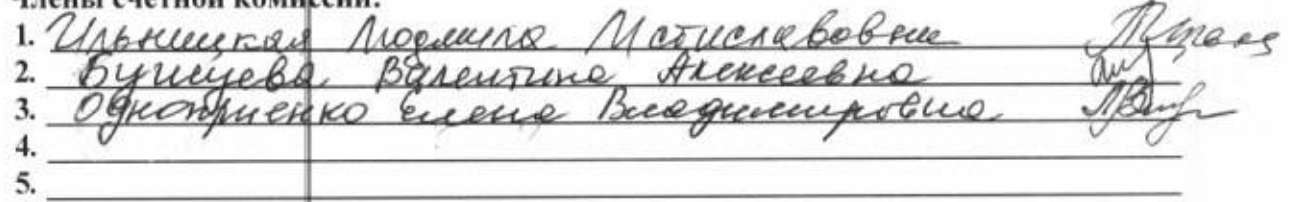 Члены счетной комиссии:
1. Ильницкая Людмила Мстиславовна
2. Валентина Алексеевна
3. Елена Владимировна
4.
5.